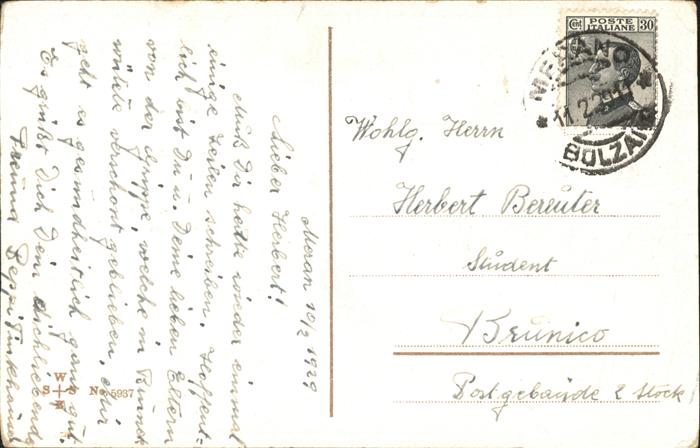 Meran 10/2 1929
Lieber Herbert!
Muß Dir heute wieder einmal
einige Zeilen schreiben. Hoffent-
lich bist Du u. Deine lieben Eltern
von der Grippe, welche in Brunek
wütete verschont geblieben, mir
geht es gesundheitlich ganz gut.
Es grüßt Dich Dein dichliebender
Freund Beppi
POSTE ITALIANE
Cent 30
MERANO
11.2.29
BOLZANO
Wohlg. Herrn
Herbert Bereuter
Student
Brunico
Postgebäude 2 Stock
W
S S
No. 5937